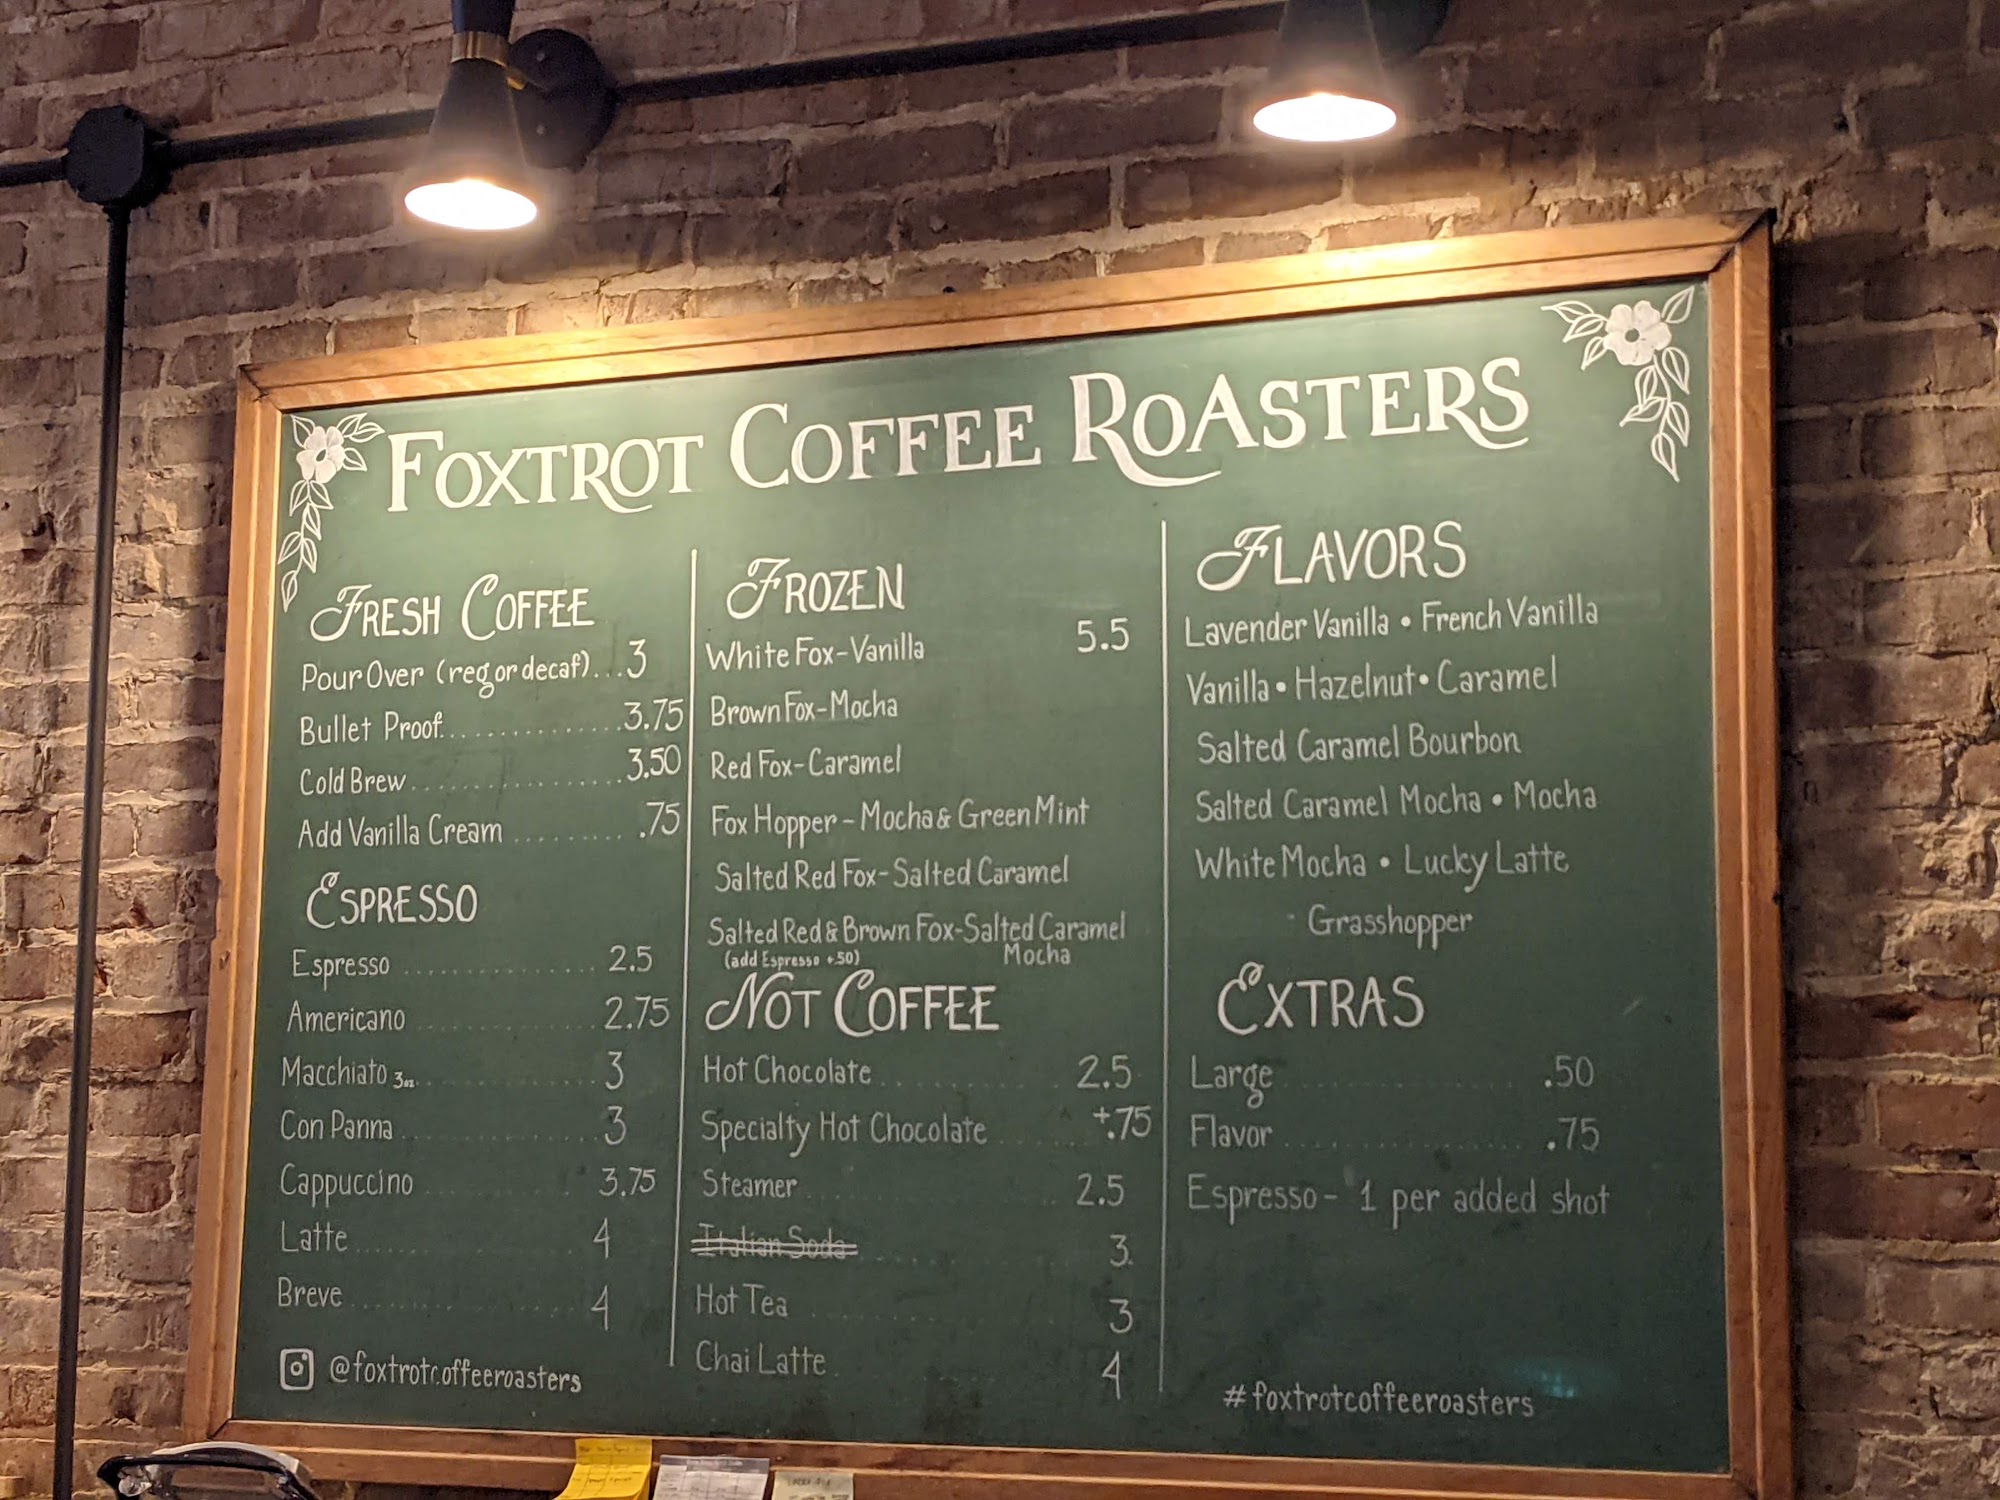 FOXTROT COFFEE ROASTERS
FRESH COFFEE
Pour Over (reg or decaf)...3
Bullet Proof..............3.75
Cold Brew....................3.50
Add Vanilla Cream ......... .75
ESPRESSO
Espresso ................ 2.5
Americano ............... 2.75
Macchiato 3oz................ 3
Con Panna................. 3
Cappuccino ............. 3.75
Latte................... 4
Breve................... 4
@foxtrotcoffeeroasters
FROZEN
White Fox-Vanilla 5.5
Brown Fox-Mocha
Red Fox-Caramel
Fox Hopper - Mocha & Green Mint
Salted Red Fox-Salted Caramel
Salted Red & Brown Fox-Salted Caramel
(add Espresso +.50) Mocha
NOT COFFEE
Hot Chocolate............ 2.5
Specialty Hot Chocolate ..... +.75
Steamer .................. 2.5
Italian Soda ............. 3
Hot Tea ................. 3
Chai Latte ............... 4
FLAVORS
Lavender Vanilla • French Vanilla
Vanilla • Hazelnut • Caramel
Salted Caramel Bourbon
Salted Caramel Mocha • Mocha
White Mocha • Lucky Latte
Grasshopper
EXTRAS
Large ................ .50
Flavor ................ .75
Espresso - 1 per added shot
#foxtrotcoffeeroasters